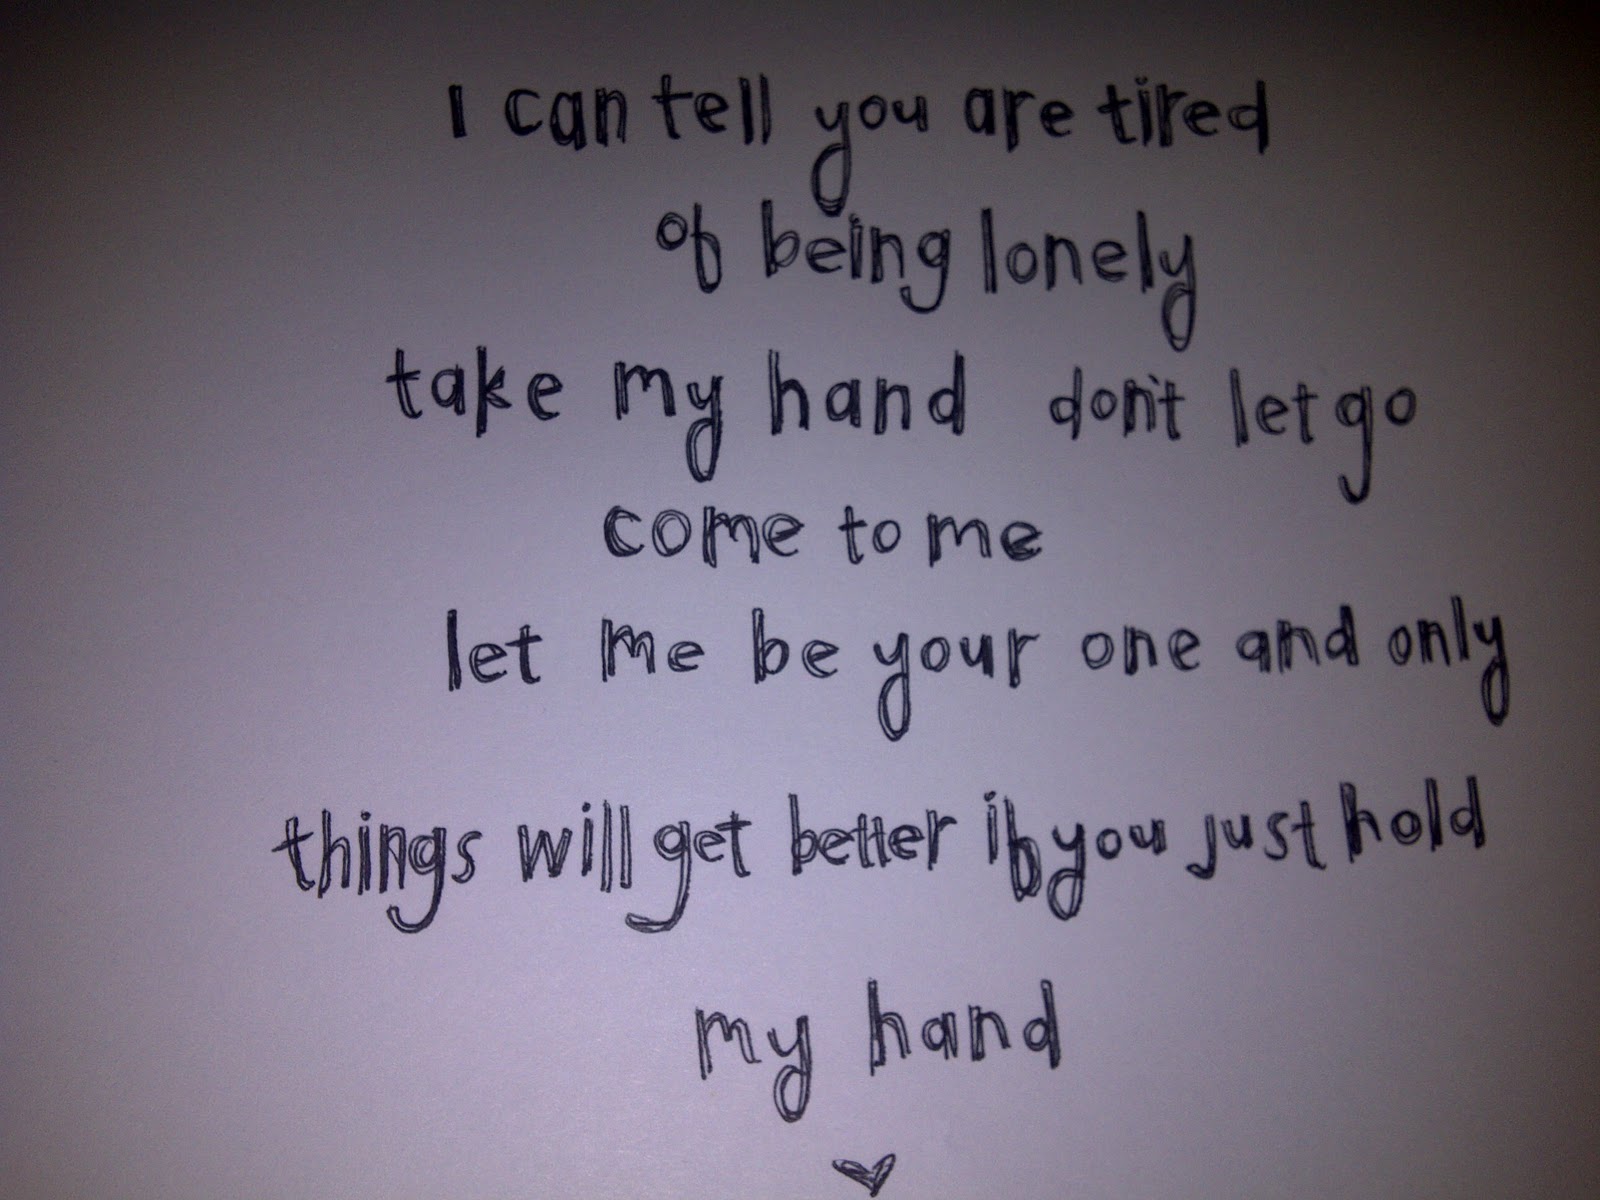 I can tell you are tired
of being lonely
take my hand don't let go
come to me
let me be your one and only
things will get better if you just hold
my hand